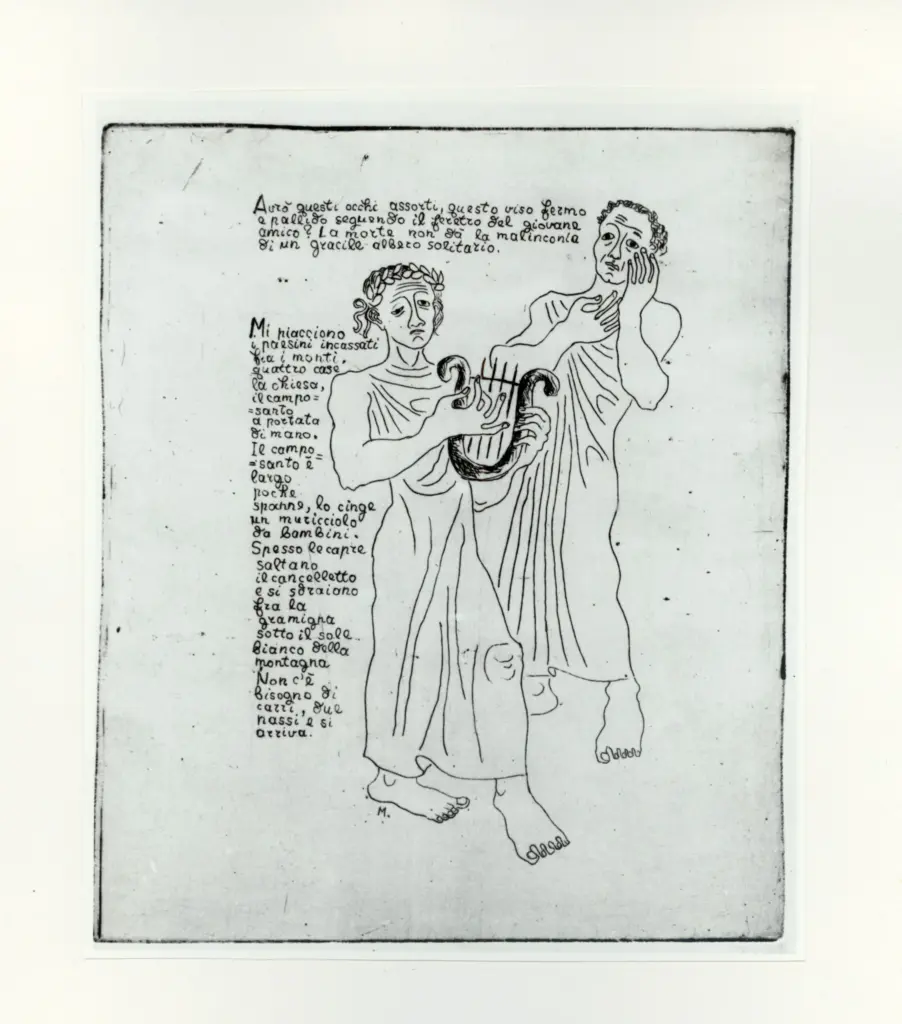 Avrò questi occhi assorti, questo viso fermo
e pallido seguendo il feretro del giovane
amico? La morte non dà la malinconia
di un gracile albero solitario.
Mi piacciono
i paesini incassati
fra i monti.
quattro case
la chiesa,
il campo=
=santo
a portata
di mano.
Il campo=
=santo è
largo
poche
spanne, lo cinge
un muricciolo
da bambini.
Spesso le capre
saltano
il cancelletto
e si sdraiano
fra la
gramigna
sotto il sole
bianco della
montagna
Non c'è
bisogno di
carri, due
passi e si
arriva.
M.